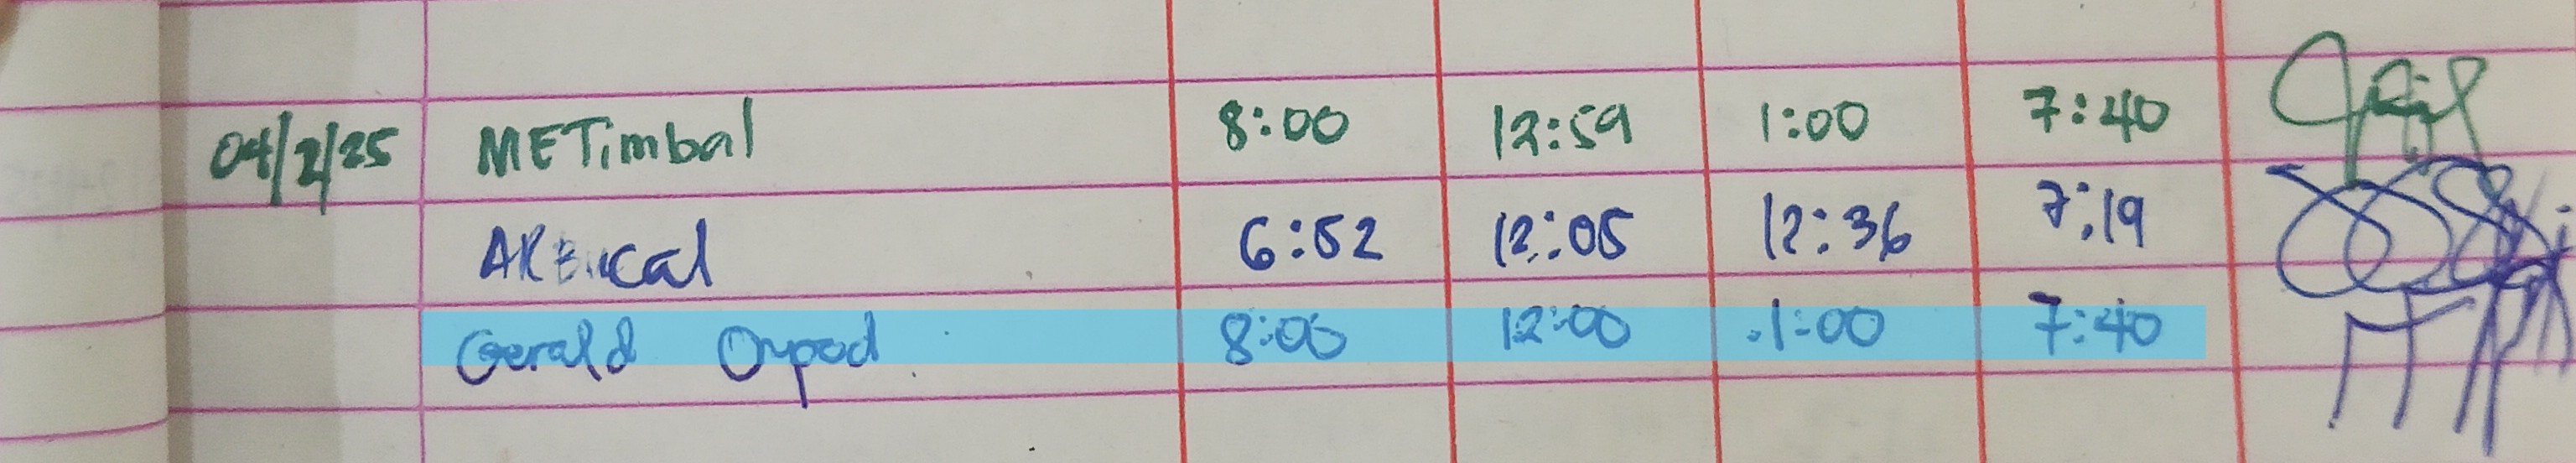 04/2/25 METimbal 8:00 12:59 1:00 7:40
6:52 12:05 12:36 7:19
Gerald Oypod 8:00 12:00 1:00 7:40